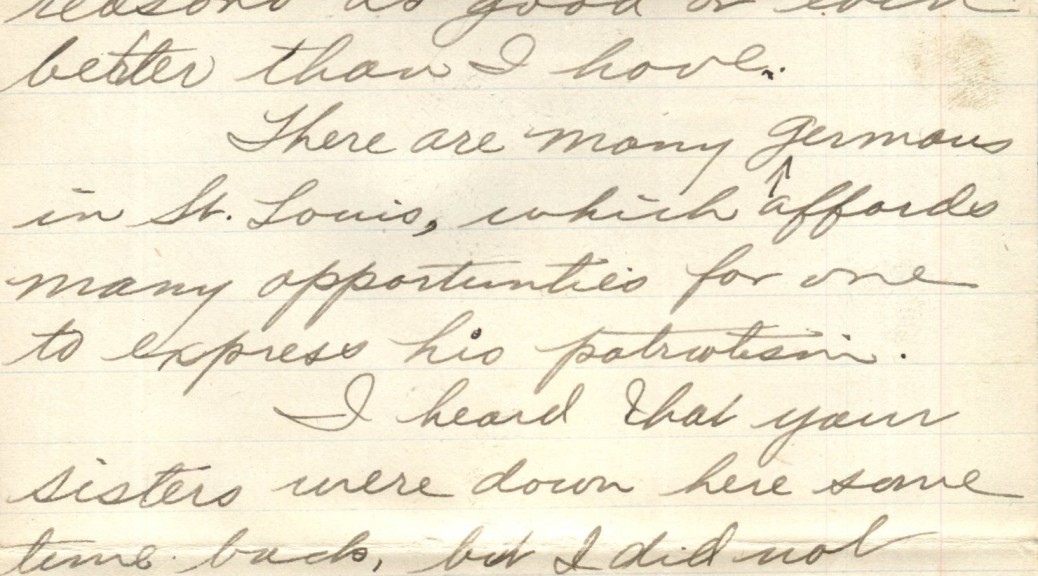 reasons as good or even
better than I have.
There are many germans
in St. Louis, which affords
many opportunties for one
to express his patriotism.
I heard that your
sisters were down here some
time back, but I did not